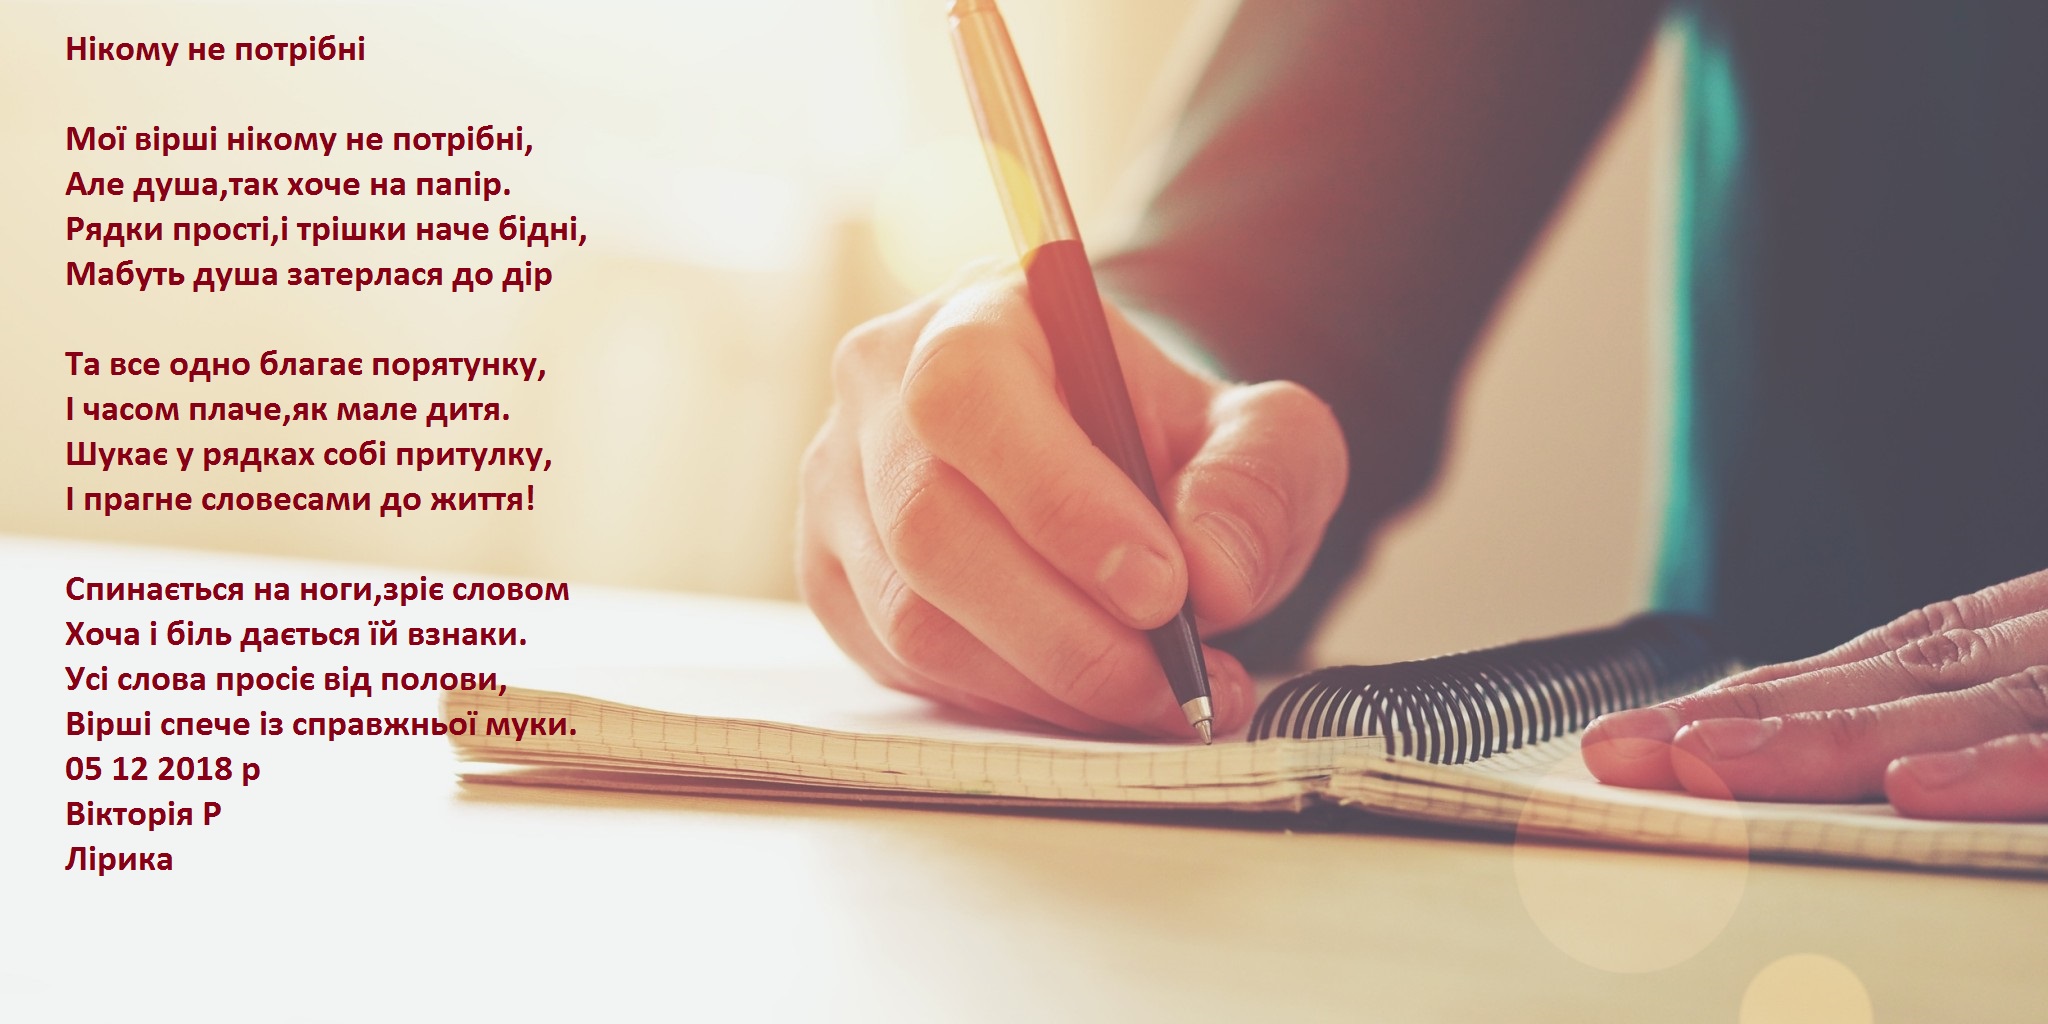 Нікому не потрібні
Мої вірші нікому не потрібні,
Але душа,так хоче на папір.
Рядки прості,і трішки наче бідні,
Мабуть душа затерлася до дір
Та все одно благає порятунку,
І часом плаче,як мале дитя.
Шукає у рядках собі притулку,
І прагне словесами до життя!
Спинається на ноги,зріє словом
Хоча і біль дається їй взнаки.
Усі слова просіє від полови,
Вірші спече із справжньої муки.
05 12 2018 р
Вікторія Р
Лірика